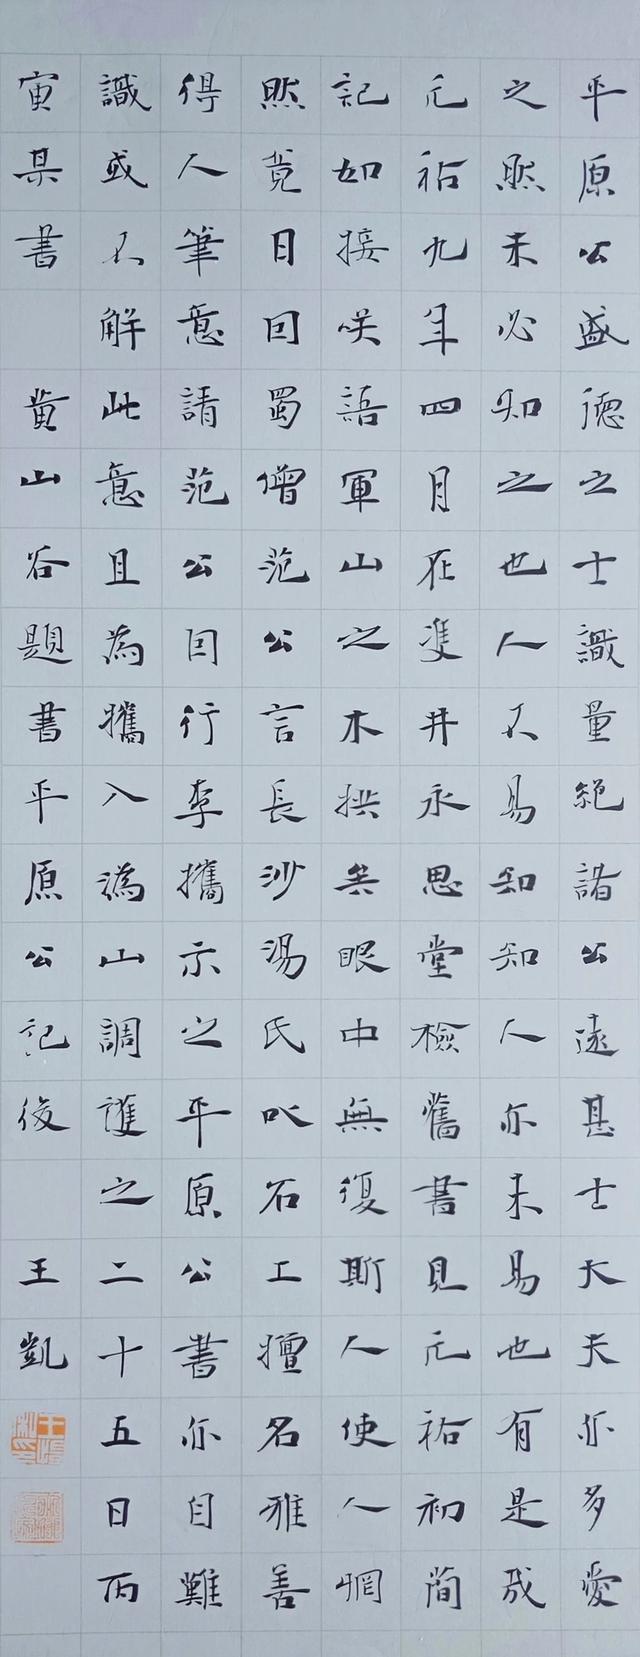 平原公盛德之士識量絕諸公遠甚士大夫亦多愛
之然未必知之也人不易知知人亦未易也有是哉
元祐九年四月在雙井永思堂檢舊書見元祐初簡
記如接咲語軍山之木拱矣眼中無復斯人使人惘
然竟日囙蜀僧范公言長沙湯氏㕥石工擅名雅善
得人筆意請范公囙行李攜示之平原公書亦自難
識或不解此意且為攜入溈山調護之二十五日丙
寅某書 黃山谷題書平原公記後 王凱